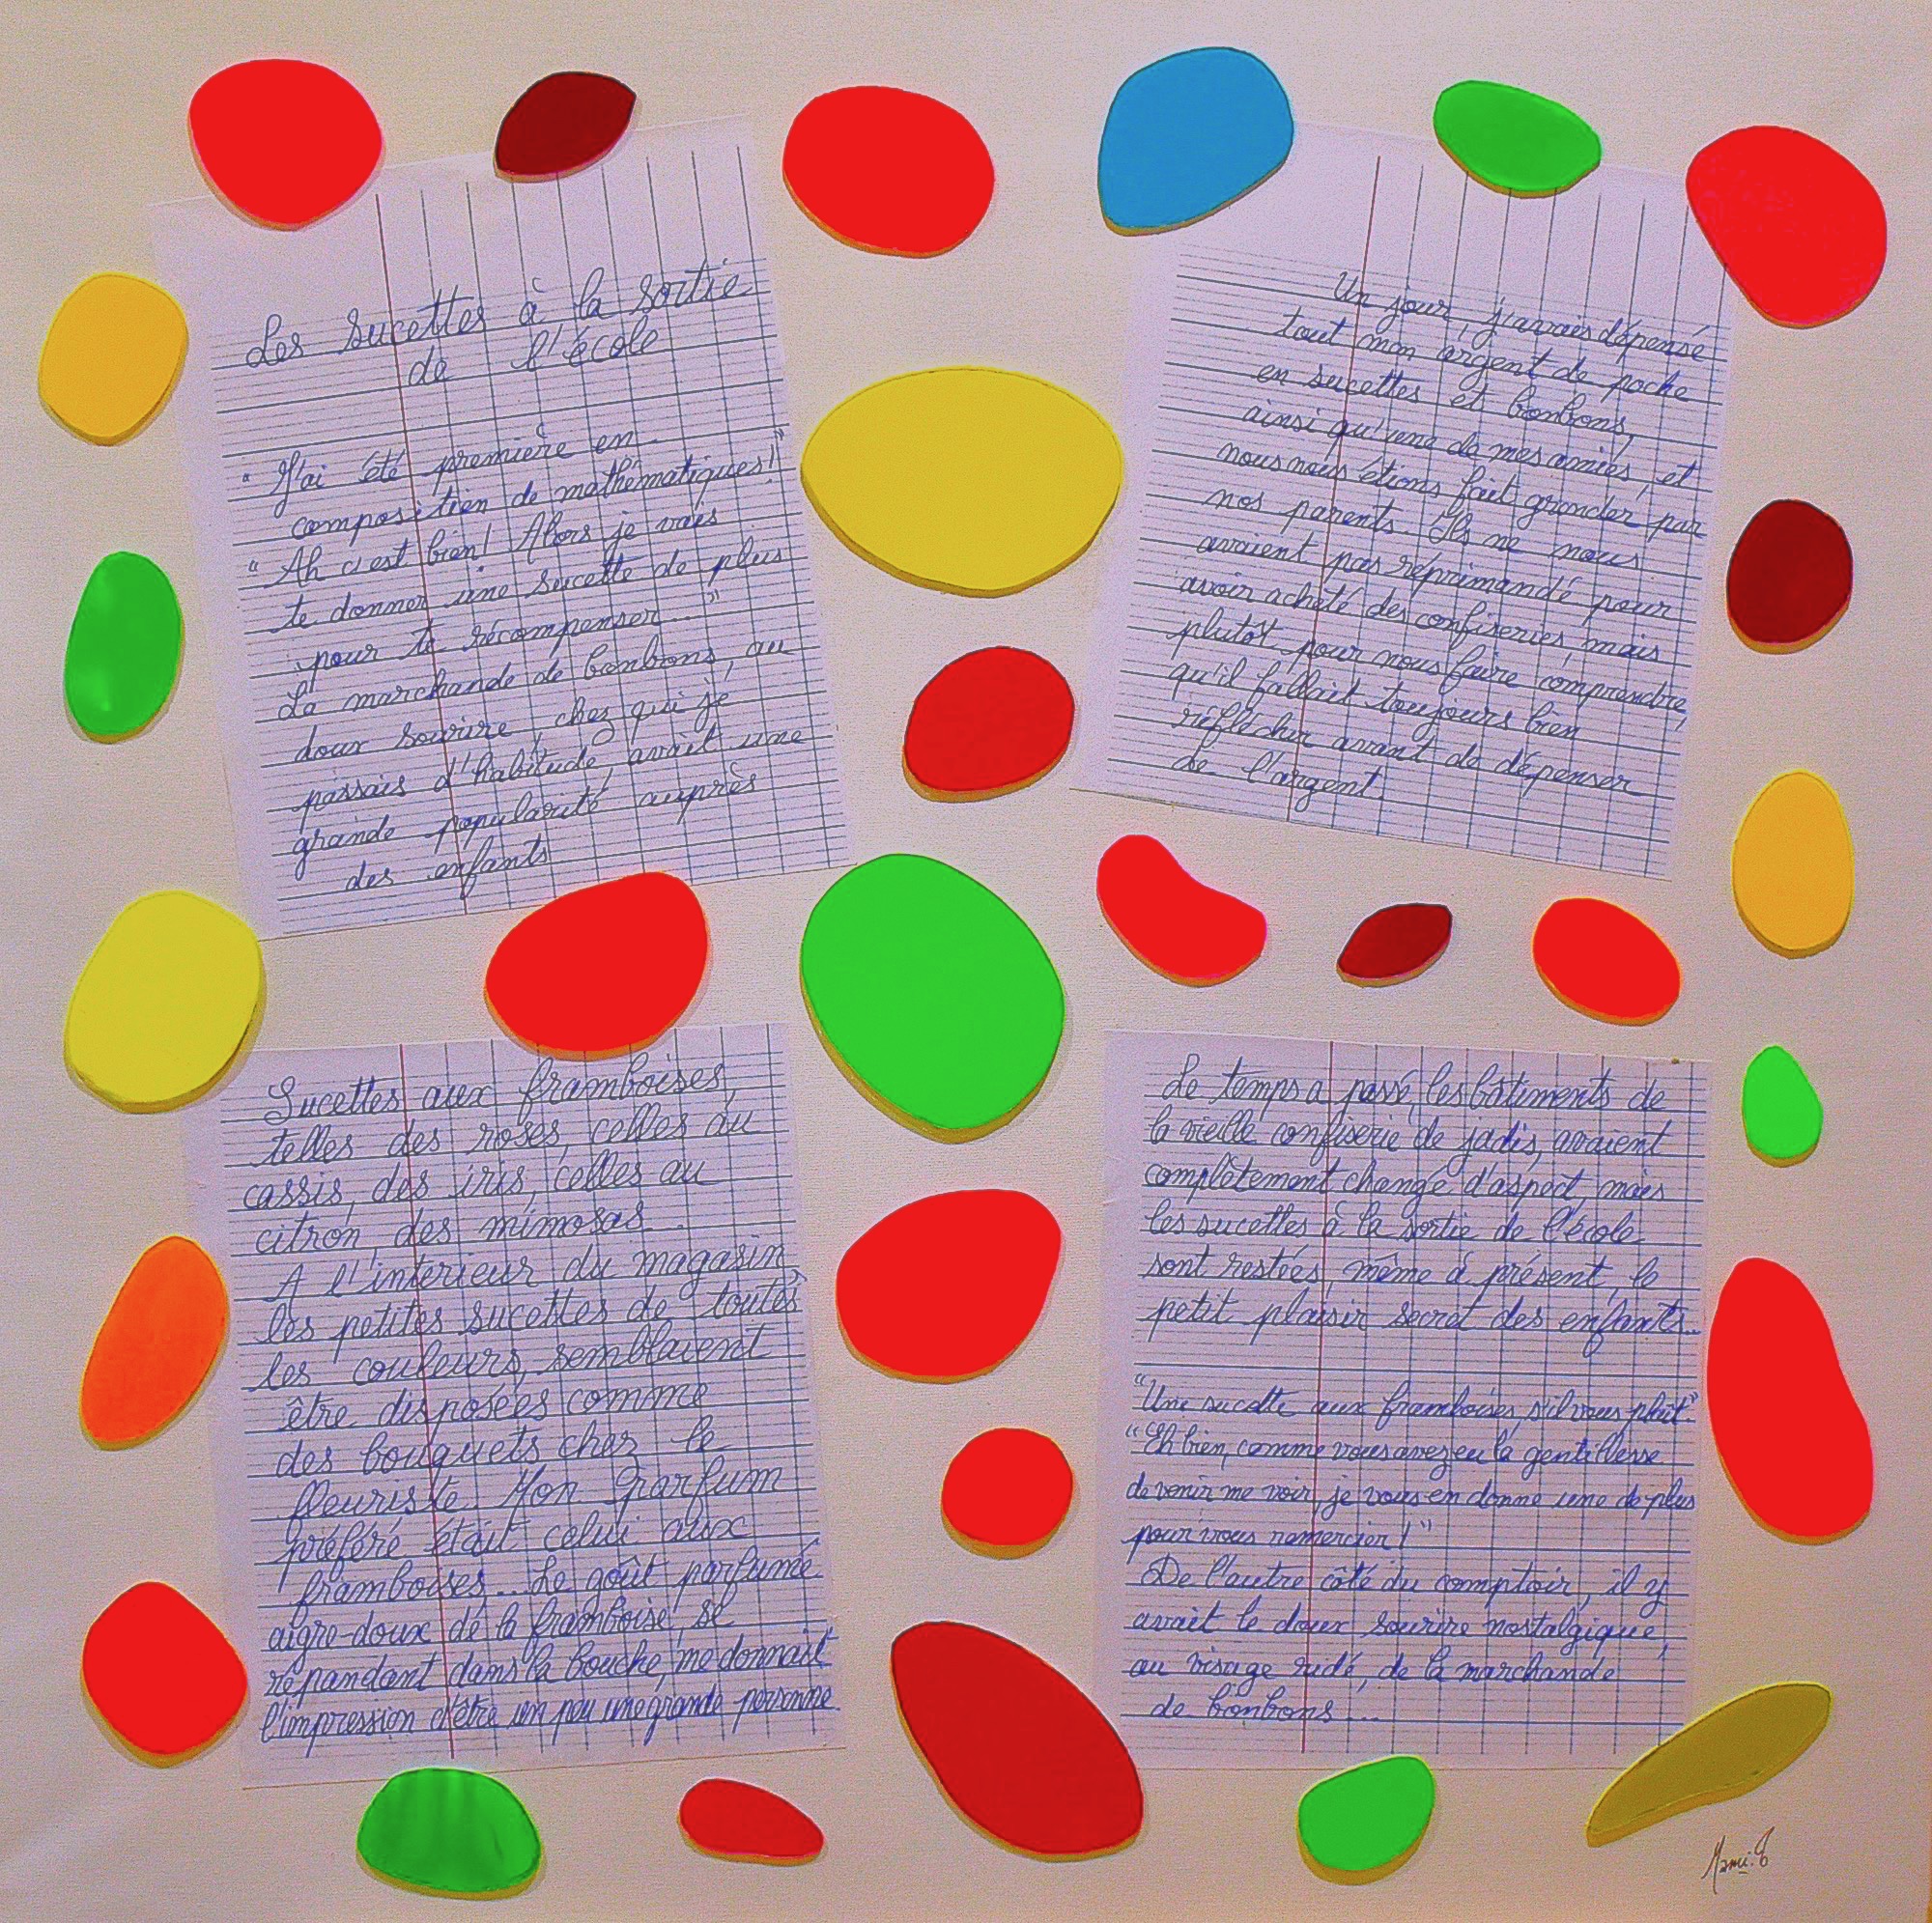 Les sucettes à la sortie
de l'école
"J'ai été première en
composition de mathématiques!"
"Ah c'est bien! Alors je vais
te donner une sucette de plus
pour te récompenser..."
La marchande de bonbons, au
doux sourire, chez qui je
passais d'habitude, avait une
grande popularité auprès
des enfants
Un jour, j'avais dépensé
tout mon argent de poche
en sucettes et bonbons,
ainsi qu'une de mes amies, et
nous nous étions fait gronder par
nos parents. Ils ne nous
avaient pas réprimandé pour
avoir acheté des confiseries, mais
plutôt pour nous faire comprendre,
qu'il fallait toujours bien
réfléchir avant de dépenser
de l'argent.
Sucettes aux framboises,
telles des roses, celles au
cassis, des iris, celles au
citron, des mimosas.
A l'intérieur du magasin,
les petites sucettes de toutes
les couleurs, semblaient
être disposées comme
des bouquets chez le
fleuriste. Mon parfum
préféré était celui aux
framboises... Le goût parfumé
aigre-doux de la framboise, se
répandant dans la bouche, me donnait
l'impression d'être un peu une grande personne.
Le temps a passé, les bâtiments de
la vieille confiserie de jadis, avaient
complètement changé d'aspect, mais
les sucettes à la sortie de l'école
sont restées, même à présent, le
petit plaisir secret des enfants...
"Une sucette aux framboises, s'il vous plaît."
"Eh bien, comme vous avez eu la gentillesse
de venir me voir, je vous en donne une de plus
pour vous remercier!"
De l'autre côté du comptoir, il y
avait le doux sourire nostalgique,
au visage ridé, de la marchande
de bonbons...